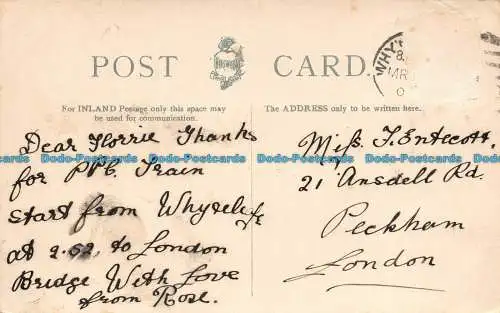 POST CARD.
WHY
MR
For INLAND Postage only this space may
be used for communication.
The ADDRESS only to be written here.
Dear Florrie Thanks
for PPC Train
start from Whyteleafe
at 2.52, to London
Bridge With Love
from Rose.
Miss. F. Entecott.
21 Ansdell Rd.
Peckham
London
Dodo-Postcards Dodo-Postcards Dodo-Postcards Dodo-Postcards